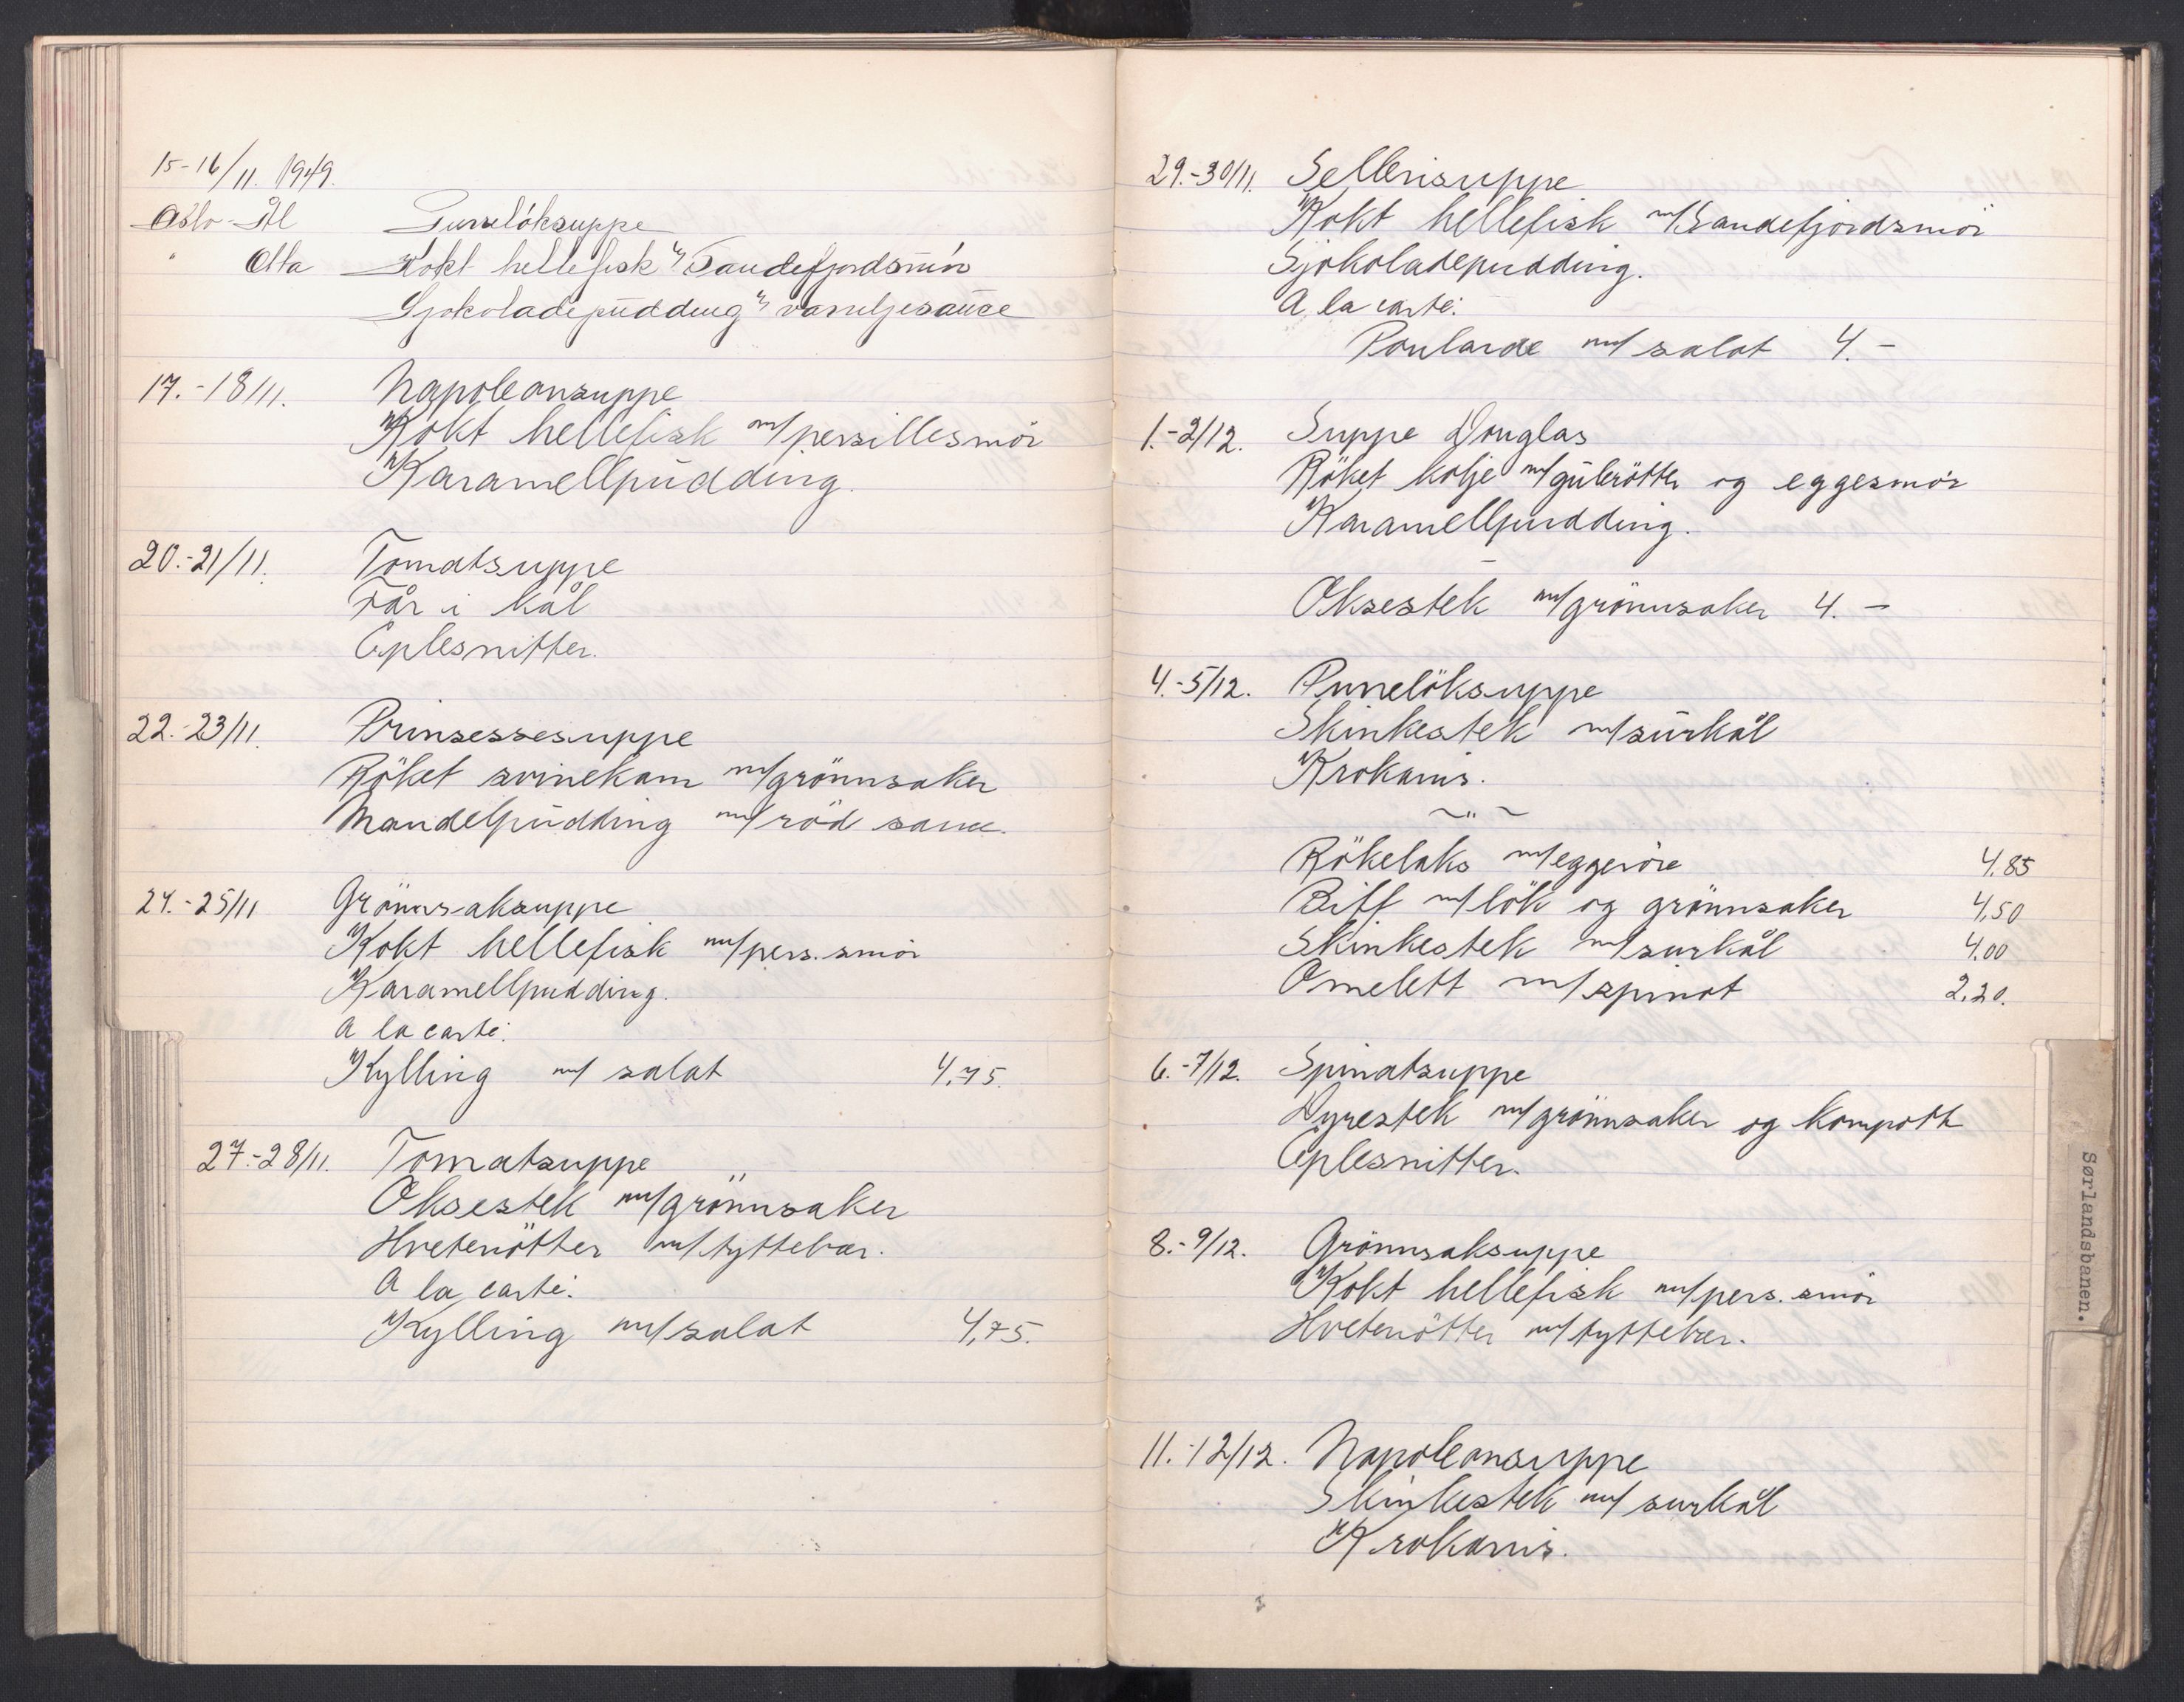 15-16/11. 1949.
Oslo-Ål Purreløksuppe
" Otta Kokt hellefisk m/ Sandefjordsmör
Sjokoladepudding m/ vaniljesauce
17.-18/11. Napoleonsuppe
Kokt hellefisk m/persillesmör
Karamellpudding.
20.-21/11. Tomatsuppe
Får i kål
Eplesnitter.
22.-23/11. Prinsessesuppe
Röket svinekam m/grönnsaker
Mandelpudding m/röd sause.
24.-25/11 Grönnsaksuppe
Kokt hellefisk m/pers. smör
Karamellpudding.
A la carte:
Kylling m/ salat 4,75.
27.-28/11. Tomatsuppe
Oksestek m/grönnsaker
Hvetenötter m/tyttebær.
A la carte:
Kylling m/salat 4,75.
29.-30/11. Sellerisuppe
Kokt hellefisk m/Sandefjordsmör
Sjokoladepudding.
A la carte:
Poularde m/ salat 4.-
1.-2/12. Suppe Douglas
Röket kolje m/gulerötter og eggesmör
Karamellpudding.
-
Oksestek m/grönnsaker 4.-
4.-5/12. Purrelöksuppe
Skinkestek m/surkål
Krokanis.
~"~
Rökelaks m/eggeröre 4.85
Biff m/lök og grönnsaker 4,50
Skinkestek m/surkål 4.00
Omelett m/spinat 2,20.
6.-7/12. Spinatsuppe
Dyrestek m/grönnsaker og kompott
Eplesnitter.
8.-9/12. Grönnsaksuppe
Kokt hellefisk m/pers. smör
Hvetenötter m/tyttebær.
11.-12/12. Napoleonsuppe
Skinkestek m/ surkål
Krokanis.
Sørlandsbanen.